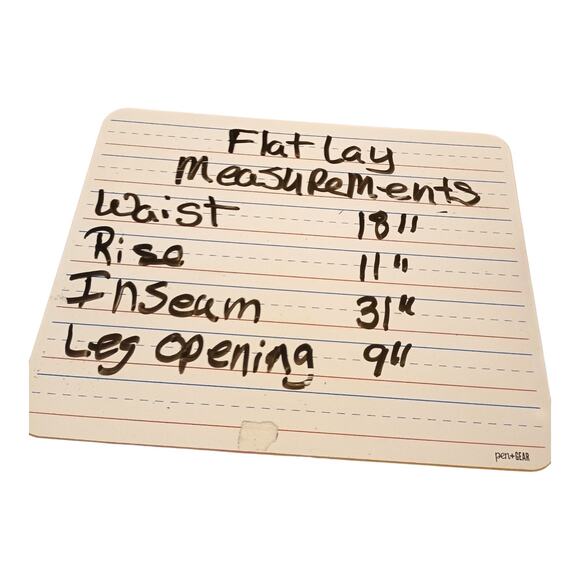 Flat Lay
Measurements
Waist 18"
Rise 11"
Inseam 31"
Leg Opening 9"
pen+GEAR